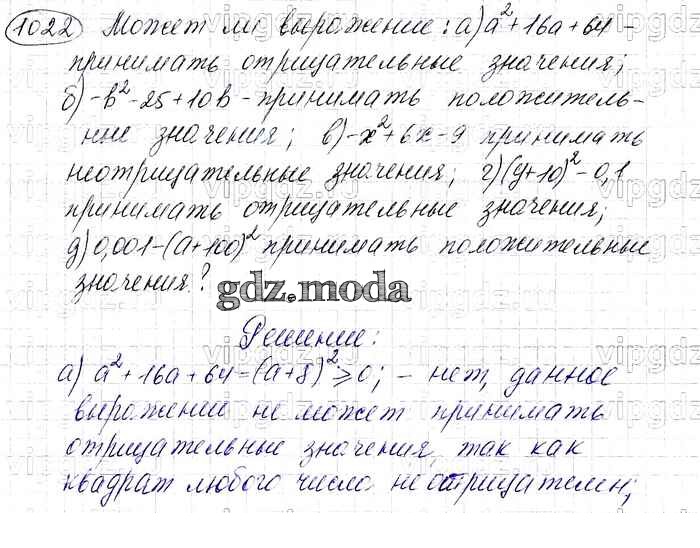 1022 Может ли выражение: а) a²+16a+64 -
принимать отрицательные значения;
б) -b²-25+10b - принимать положитель-
ные значения; в) -x²+6x-9 принимать
неотрицательные значения; г) (y+10)²-0,1
принимать отрицательные значения;
д) 0,001-(a+100)² принимать положительные
значения?
gdz.moda
Решение:
а) a²+16a+64=(a+8)²≥0; - нет, данное
выражение не может принимать
отрицательные значения, так как
квадрат любого числа неотрицателен;